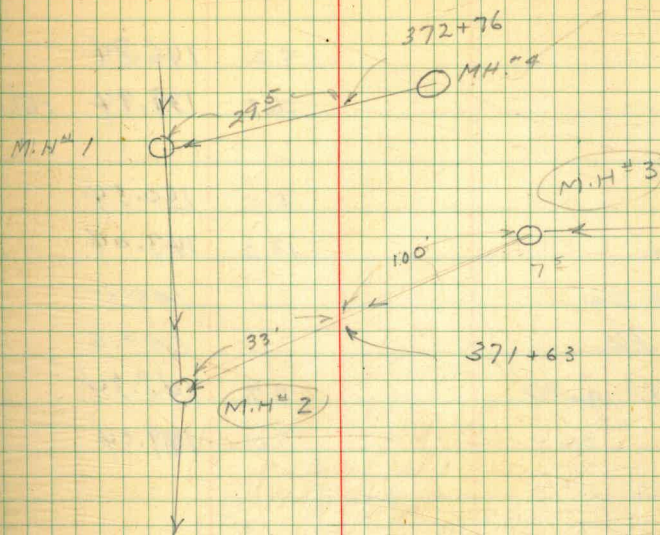 372+76
MH.#4
29 5
M.H#1
M.H#3
100'
7 5
33'
371+63
M.H#2